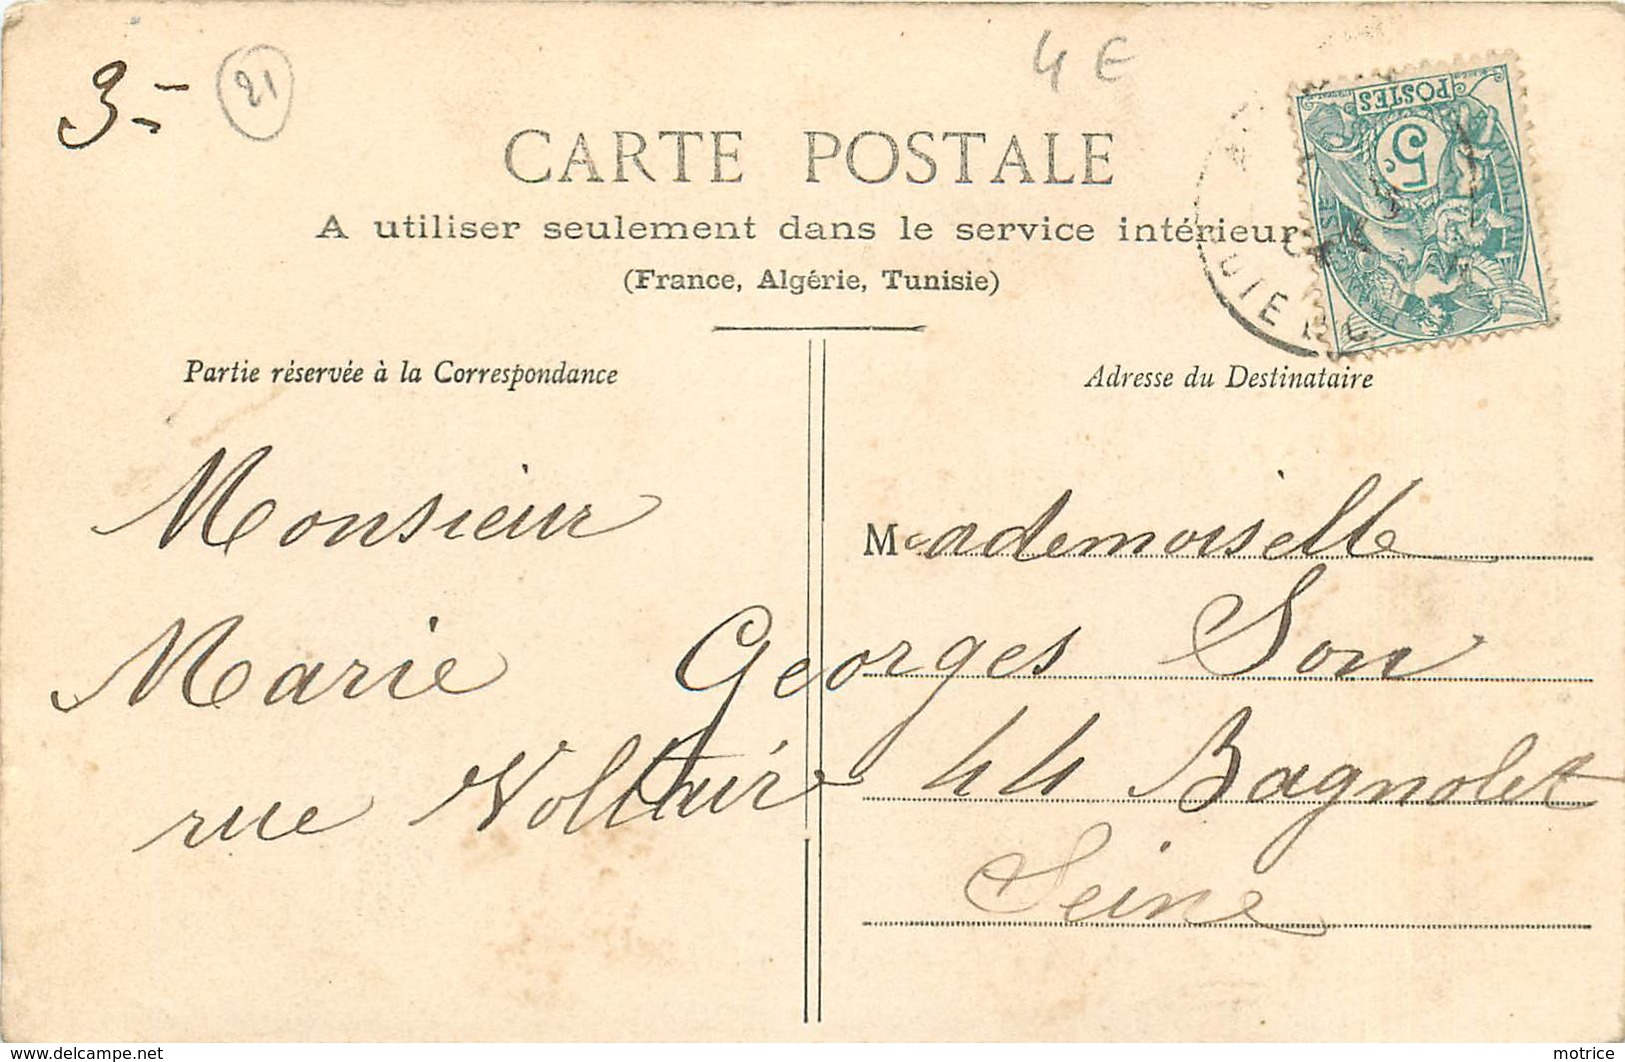 3-
21
4 E
CARTE POSTALE
A utiliser seulement dans le service intérieur
(France, Algérie, Tunisie)
POSTES
5c
Partie réservée à la Correspondance
Adresse du Destinataire
Monsieur Mademoiselle
Marie Georges Son
rue Voltair 44 Bagnolet
Seine
www.delcampe.net
motrice